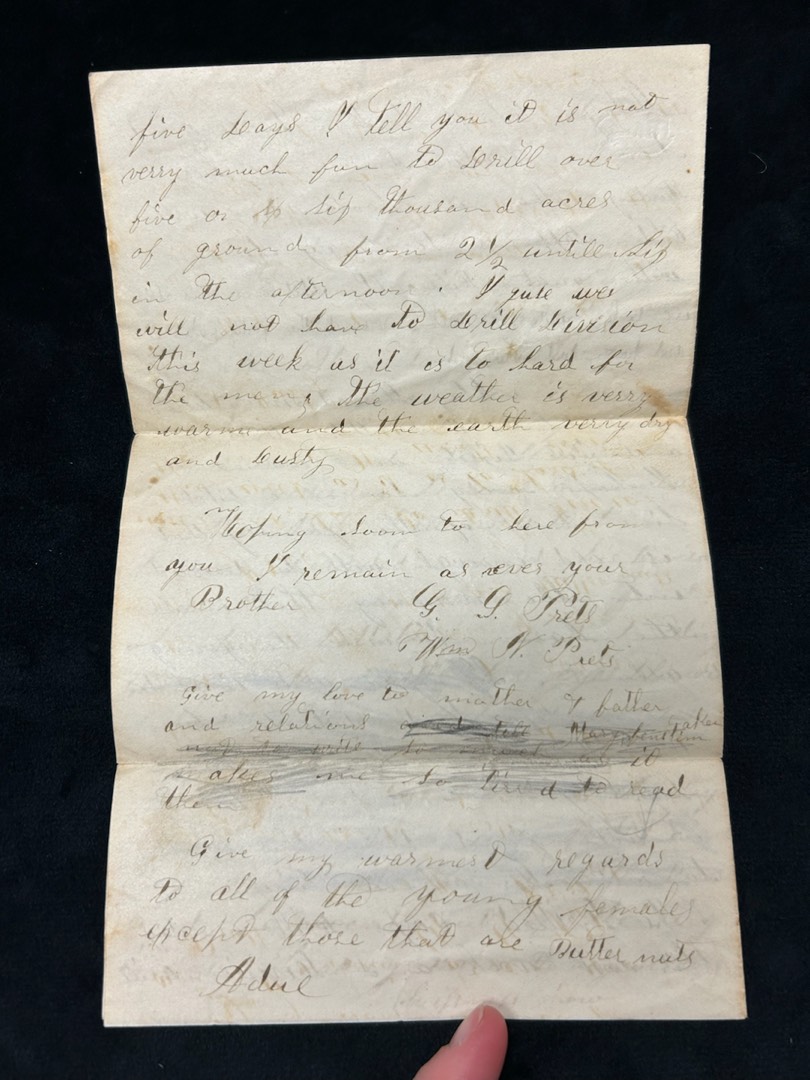 five Days I tell you it is not
verry much fun to Drill over
five or six thousand acres
of ground from 2 1/2 untill six
in the afternoon. I guse wee
will not have to Drill Division
this week as it is to hard for
the men, the weather is verry
warme and the earth verry dry
and Dusty
Hoping soom to here from
you I remain as ever your
Brother G. D. Prets
Wm N. Prets
Give my love to mother & father
and relations and tell
not to write so much as it
makes me so tired to read
them
Give my warmest regards
to all of the young females
except those that are Butter nuts
Adue